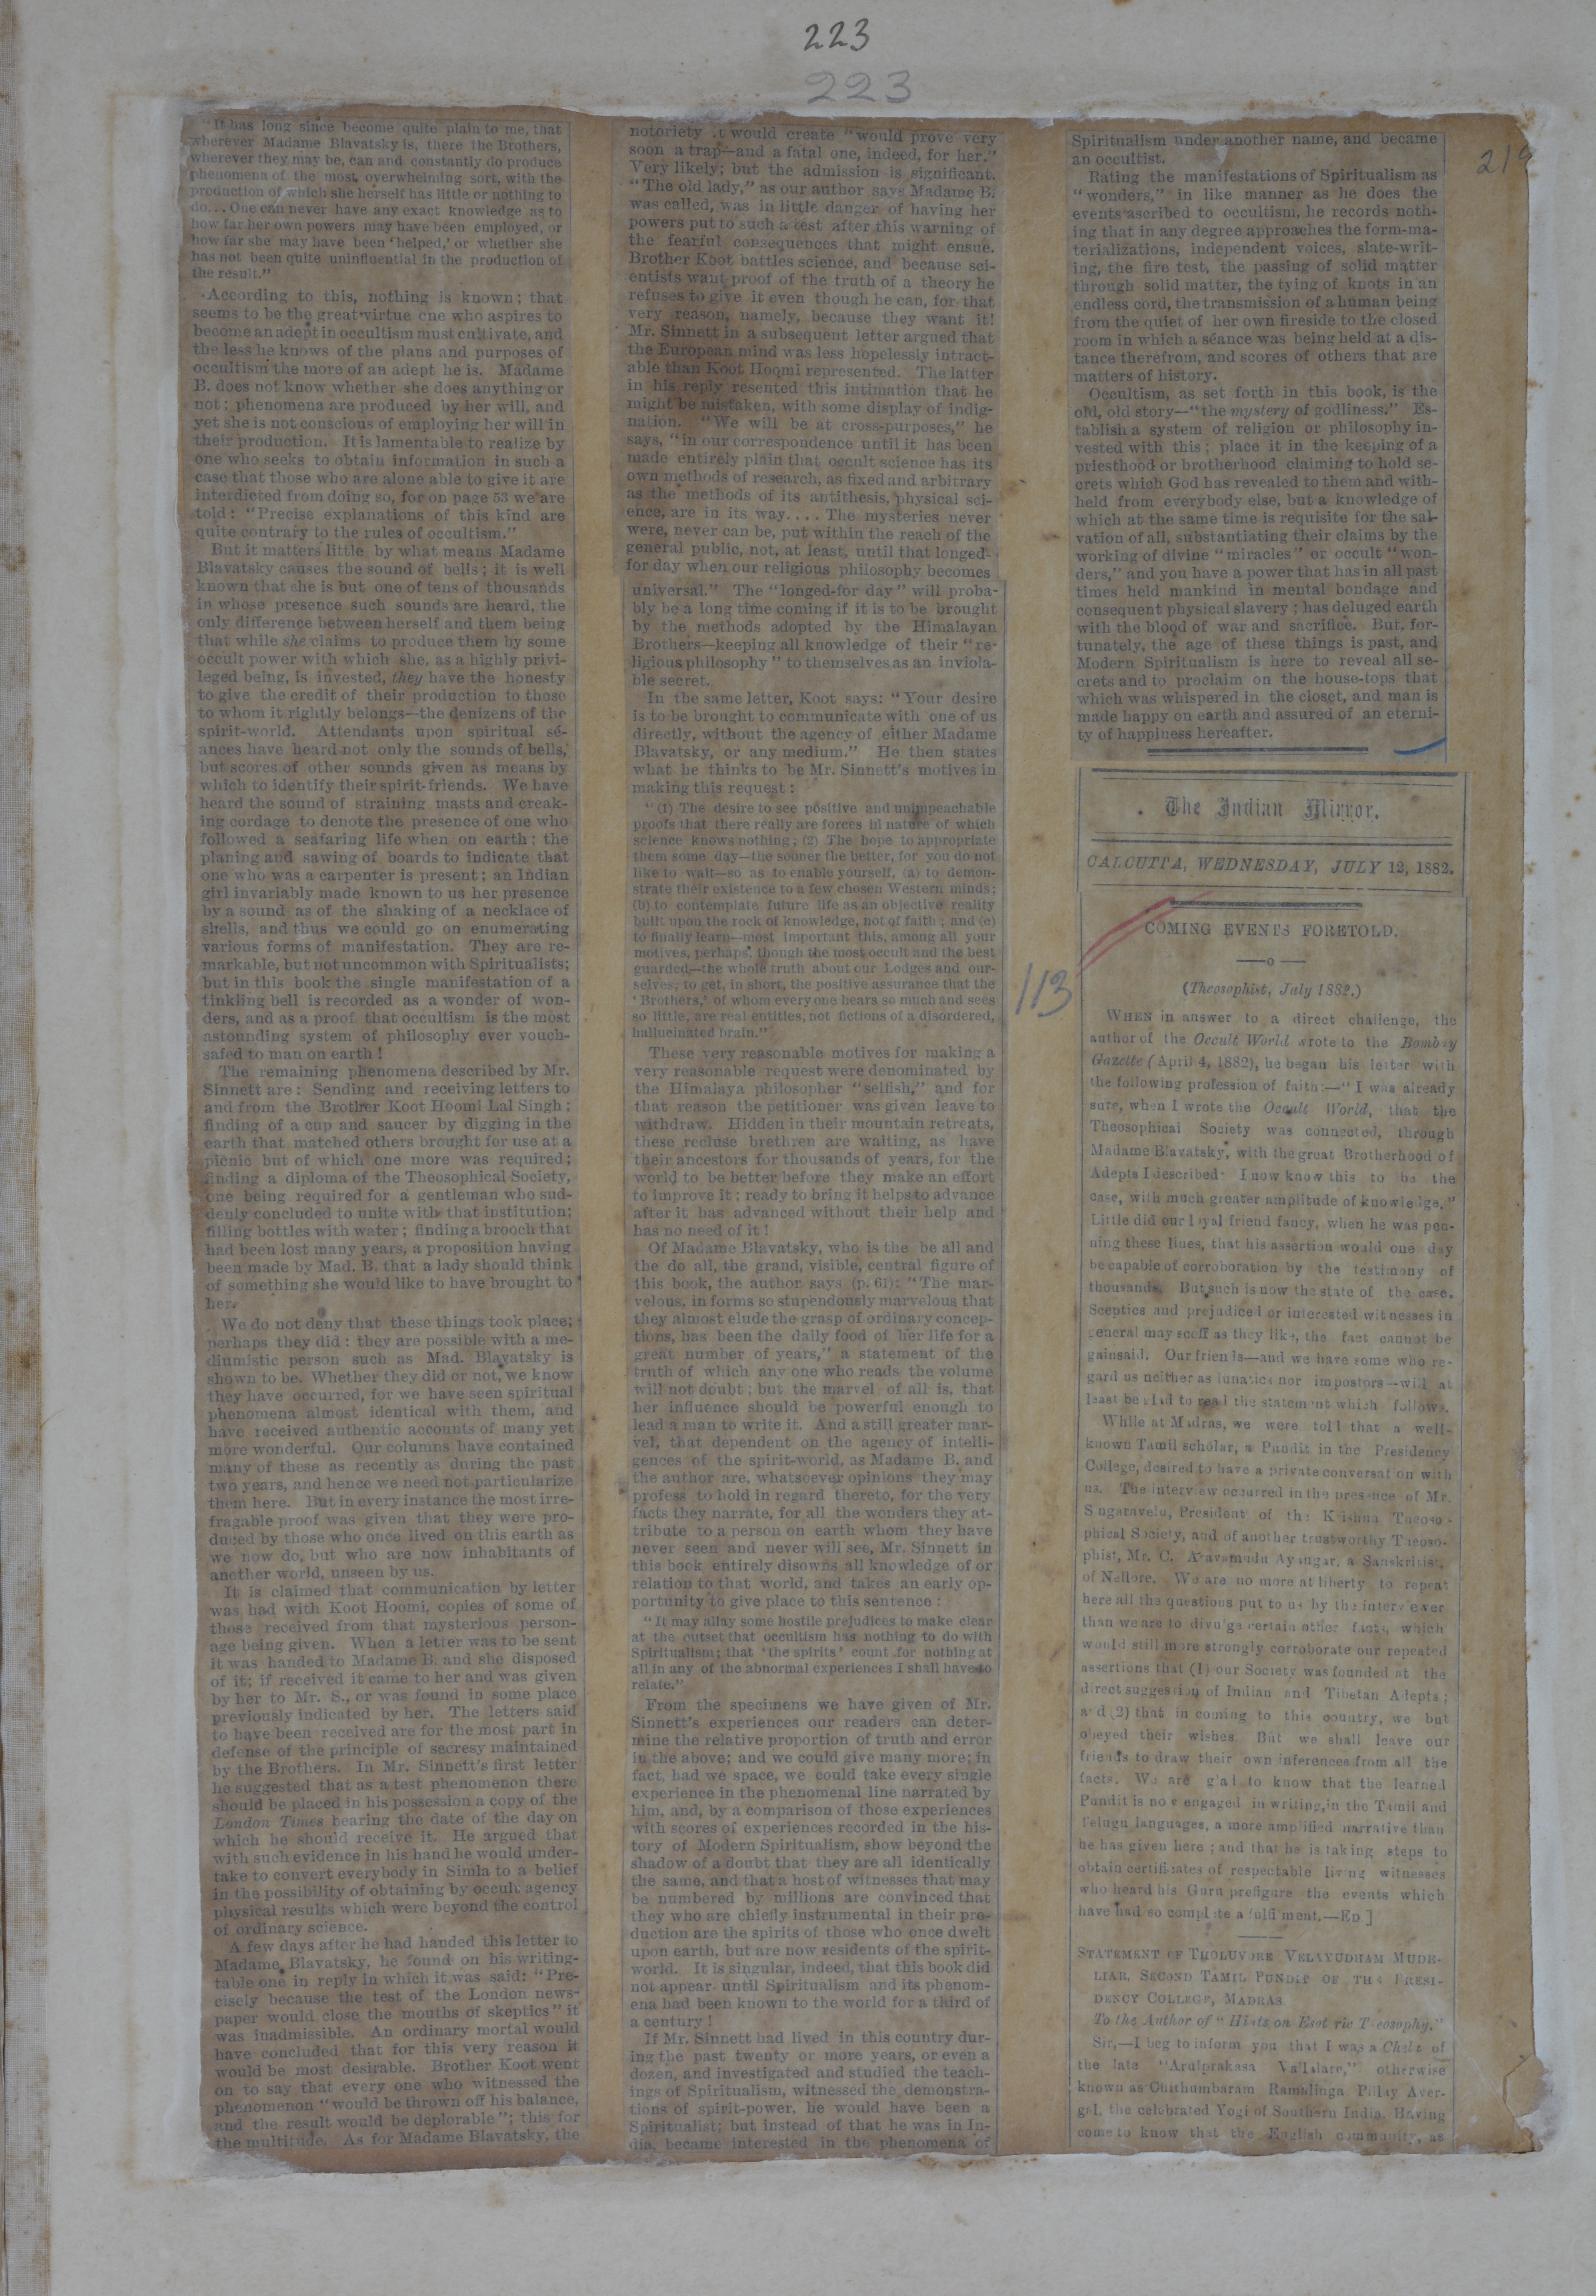 223
223
219
"It has long since become quite plain to me, that
wherever Madame Blavatsky is, there the Brothers,
wherever they may be, can and constantly do produce
phenomena of the most overwhelming sort, with the
production of which she herself has little or nothing to
do... One can never have any exact knowledge as to
how far her own powers may have been employed, or
how far she may have been 'helped,' or whether she
has not been quite uninfluential in the production of
the result."
According to this, nothing is known; that
seems to be the great virtue one who aspires to
become an adept in occultism must cultivate, and
the less he knows of the plans and purposes of
occultism the more of an adept he is. Madame
B. does not know whether she does anything or
not; phenomena are produced by her will, and
yet she is not conscious of employing her will in
their production. It is lamentable to realize by
one who seeks to obtain information in such a
case that those who are alone able to give it are
interdicted from doing so, for on page 53 we are
told: "Precise explanations of this kind are
quite contrary to the rules of occultism."
But it matters little by what means Madame
Blavatsky causes the sound of bells; it is well
known that she is but one of tens of thousands
in whose presence such sounds are heard, the
only difference between herself and them being
that while she claims to produce them by some
occult power with which she, as a highly privi-
leged being, is invested, they have the honesty
to give the credit of their production to those
to whom it rightly belongs—the denizens of the
spirit-world. Attendants upon spiritual sé-
ances have heard not only the sounds of bells,
but scores of other sounds given as means by
which to identify their spirit-friends. We have
heard the sound of straining masts and creak-
ing cordage to denote the presence of one who
followed a seafaring life when on earth; the
planing and sawing of boards to indicate that
one who was a carpenter is present; an Indian
girl invariably made known to us her presence
by a sound as of the shaking of a necklace of
shells, and thus we could go on enumerating
various forms of manifestation. They are re-
markable, but not uncommon with Spiritualists;
but in this book the single manifestation of a
tinkling bell is recorded as a wonder of won-
ders, and as a proof that occultism is the most
astounding system of philosophy ever vouch-
safed to man on earth!
The remaining phenomena described by Mr.
Sinnett are: Sending and receiving letters to
and from the Brother Koot Hoomi Lal Singh;
finding of a cup and saucer by digging in the
earth that matched others brought for use at a
picnic but of which one more was required;
finding a diploma of the Theosophical Society,
one being required for a gentleman who sud-
denly concluded to unite with that institution;
filling bottles with water; finding a brooch that
had been lost many years, a proposition having
been made by Mad. B. that a lady should think
of something she would like to have brought to
her.
We do not deny that these things took place;
perhaps they did: they are possible with a me-
diumistic person such as Mad. Blavatsky is
shown to be. Whether they did or not, we know
they have occurred, for we have seen spiritual
phenomena almost identical with them, and
have received authentic accounts of many yet
more wonderful. Our columns have contained
many of these as recently as during the past
two years, and hence we need not particularize
them here. But in every instance the most irre-
fragable proof was given that they were pro-
duced by those who once lived on this earth as
we now do, but who are now inhabitants of
another world, unseen by us.
It is claimed that communication by letter
was had with Koot Hoomi, copies of some of
those received from that mysterious person-
age being given. When a letter was to be sent
it was handed to Madame B. and she disposed
of it; if received it came to her and was given
by her to Mr. S., or was found in some place
previously indicated by her. The letters said
to have been received are for the most part in
defense of the principle of secresy maintained
by the Brothers. In Mr. Sinnett's first letter
he suggested that as a test phenomenon there
should be placed in his possession a copy of the
London Times bearing the date of the day on
which he should receive it. He argued that
with such evidence in his hand he would under-
take to convert everybody in Simla to a belief
in the possibility of obtaining by occult agency
physical results which were beyond the control
of ordinary science.
A few days after he had handed this letter to
Madame Blavatsky, he found on his writing-
table one in reply in which it was said: "Pre-
cisely because the test of the London news-
paper would close the mouths of skeptics" it
was inadmissible. An ordinary mortal would
have concluded that for this very reason it
would be most desirable. Brother Koot went
on to say that every one who witnessed the
phenomenon "would be thrown off his balance,
and the result would be deplorable"; this for
the multitude. As for Madame Blavatsky, the
notoriety it would create "would prove very
soon a trap—and a fatal one, indeed, for her."
Very likely; but the admission is significant.
"The old lady," as our author says Madame B.
was called, was in little danger of having her
powers put to such a test after this warning of
the fearful consequences that might ensue.
Brother Koot battles science, and because sci-
entists want proof of the truth of a theory he
refuses to give it even though he can, for that
very reason, namely, because they want it!
Mr. Sinnett in a subsequent letter argued that
the European mind was less hopelessly intract-
able than Koot Hoomi represented. The latter
in his reply resented this intimation that he
might be mistaken, with some display of indig-
nation. "We will be at cross-purposes," he
says, "in our correspondence until it has been
made entirely plain that occult science has its
own methods of research, as fixed and arbitrary
as the methods of its antithesis, physical sci-
ence, are in its way.... The mysteries never
were, never can be, put within the reach of the
general public, not, at least, until that longed-
for day when our religious philosophy becomes
universal." The "longed-for day" will proba-
bly be a long time coming if it is to be brought
by the methods adopted by the Himalayan
Brothers—keeping all knowledge of their "re-
ligious philosophy" to themselves as an inviola-
ble secret.
In the same letter, Koot says: "Your desire
is to be brought to communicate with one of us
directly, without the agency of either Madame
Blavatsky, or any medium." He then states
what he thinks to be Mr. Sinnett's motives in
making this request:
"(1) The desire to see positive and unimpeachable
proofs that there really are forces in nature of which
science knows nothing; (2) The hope to appropriate
them some day—the sooner the better, for you do not
like to wait—so as to enable yourself, (a) to demon-
strate their existence to a few chosen Western minds;
(b) to contemplate future life as an objective reality
built upon the rock of knowledge, not of faith; and (c)
to finally learn—most important this, among all your
motives, perhaps, though the most occult and the best
guarded—the whole truth about our Lodges and our-
selves; to get, in short, the positive assurance that the
'Brothers,' of whom everyone hears so much and sees
so little, are real entities, not fictions of a disordered,
hallucinated brain."
These very reasonable motives for making a
very reasonable request were denominated by
the Himalaya philosopher "selfish," and for
that reason the petitioner was given leave to
withdraw. Hidden in their mountain retreats,
these recluse brethren are waiting, as have
their ancestors for thousands of years, for the
world to be better before they make an effort
to improve it; ready to bring it helps to advance
after it has advanced without their help and
has no need of it!
Of Madame Blavatsky, who is the be all and
the do all, the grand, visible, central figure of
this book, the author says (p. 61): "The mar-
velous, in forms so stupendously marvelous that
they almost elude the grasp of ordinary concep-
tions, has been the daily food of her life for a
great number of years," a statement of the
truth of which any one who reads the volume
will not doubt; but the marvel of all is, that
her influence should be powerful enough to
lead a man to write it. And a still greater mar-
vel, that dependent on the agency of intelli-
gences of the spirit-world, as Madame B. and
the author are, whatsoever opinions they may
profess to hold in regard thereto, for the very
facts they narrate, for all the wonders they at-
tribute to a person on earth whom they have
never seen and never will see, Mr. Sinnett in
this book entirely disowns all knowledge of or
relation to that world, and takes an early op-
portunity to give place to this sentence:
"It may allay some hostile prejudices to make clear
at the outset that occultism has nothing to do with
Spiritualism; that 'the spirits' count for nothing at
all in any of the abnormal experiences I shall have to
relate."
From the specimens we have given of Mr.
Sinnett's experiences our readers can deter-
mine the relative proportion of truth and error
in the above; and we could give many more; in
fact, had we space, we could take every single
experience in the phenomenal line narrated by
him, and, by a comparison of those experiences
with scores of experiences recorded in the his-
tory of Modern Spiritualism, show beyond the
shadow of a doubt that they are all identically
the same, and that a host of witnesses that may
be numbered by millions are convinced that
they who are chiefly instrumental in their pro-
duction are the spirits of those who once dwelt
upon earth, but are now residents of the spirit-
world. It is singular, indeed, that this book did
not appear until Spiritualism and its phenom-
ena had been known to the world for a third of
a century!
If Mr. Sinnett had lived in this country dur-
ing the past twenty or more years, or even a
dozen, and investigated and studied the teach-
ings of Spiritualism, witnessed the demonstra-
tions of spirit-power, he would have been a
Spiritualist; but instead of that he was in In-
dia, became interested in the phenomena of
Spiritualism under another name, and became
an occultist.
Rating the manifestations of Spiritualism as
"wonders," in like manner as he does the
events ascribed to occultism, he records noth-
ing that in any degree approaches the form-ma-
terializations, independent voices, slate-writ-
ing, the fire test, the passing of solid matter
through solid matter, the tying of knots in an
endless cord, the transmission of a human being
from the quiet of her own fireside to the closed
room in which a séance was being held at a dis-
tance therefrom, and scores of others that are
matters of history.
Occultism, as set forth in this book, is the
old, old story—"the mystery of godliness." Es-
tablish a system of religion or philosophy in-
vested with this; place it in the keeping of a
priesthood or brotherhood claiming to hold se-
crets which God has revealed to them and with-
held from everybody else, but a knowledge of
which at the same time is requisite for the sal-
vation of all, substantiating their claims by the
working of divine "miracles" or occult "won-
ders," and you have a power that has in all past
times held mankind in mental bondage and
consequent physical slavery; has deluged earth
with the blood of war and sacrifice. But, for-
tunately, the age of these things is past, and
Modern Spiritualism is here to reveal all se-
crets and to proclaim on the house-tops that
which was whispered in the closet, and man is
made happy on earth and assured of an eterni-
ty of happiness hereafter.
The Indian Mirror.
CALCUTTA, WEDNESDAY, JULY 12, 1882.
113
COMING EVENTS FORETOLD.
—o—
(Theosophist, July 1882.)
WHEN in answer to a direct challenge, the
author of the Occult World wrote to the Bombay
Gazette (April 4, 1882), he began his letter with
the following profession of faith:—"I was already
sure, when I wrote the Occult World, that the
Theosophical Society was connected, through
Madame Blavatsky, with the great Brotherhood of
Adepts I described. I now know this to be the
case, with much greater amplitude of knowledge."
Little did our loyal friend fancy, when he was pen-
ning these lines, that his assertion would one day
be capable of corroboration by the testimony of
thousands. But such is now the state of the case.
Sceptics and prejudiced or interested witnesses in
general may scoff as they like, the fact cannot be
gainsaid. Our friends—and we have some who re-
gard us neither as lunatics nor impostors—will at
least be glad to read the statement which follows.
While at Madras, we were told that a well-
known Tamil scholar, a Pundit in the Presidency
College, desired to have a private conversation with
us. The interview occurred in the presence of Mr.
Singaravelu, President of the Krishna Theoso-
phical Society, and of another trustworthy Theoso-
phist, Mr. C. Aravamudu Ayangar, a Sanskritist,
of Nellore. We are no more at liberty to repeat
here all the questions put to us by the interviewer
than we are to divulge certain other facts, which
would still more strongly corroborate our repeated
assertions that (1) our Society was founded at the
direct suggestion of Indian and Tibetan Adepts;
and (2) that in coming to this country, we but
obeyed their wishes. But we shall leave our
friends to draw their own inferences from all the
facts. We are glad to know that the learned
Pundit is now engaged in writing, in the Tamil and
Telugu languages, a more amplified narrative than
he has given here; and that he is taking steps to
obtain certificates of respectable living witnesses
who heard his Guru prefigure the events which
have had so complete a fulfilment.—ED]
STATEMENT OF THOLUVORE VELAYUDHAM MUDE-
LIAR, SECOND TAMIL PUNDIT OF THE PRESI-
DENCY COLLEGE, MADRAS.
To the Author of "Hints on Esoteric Theosophy."
Sir,—I beg to inform you that I was a Chela of
the late "Arulprakasa Vallalare," otherwise
known as Chithumbaram Ramalinga Pillay Aver-
gal, the celebrated Yogi of Southern India. Having
come to know that the English community, as